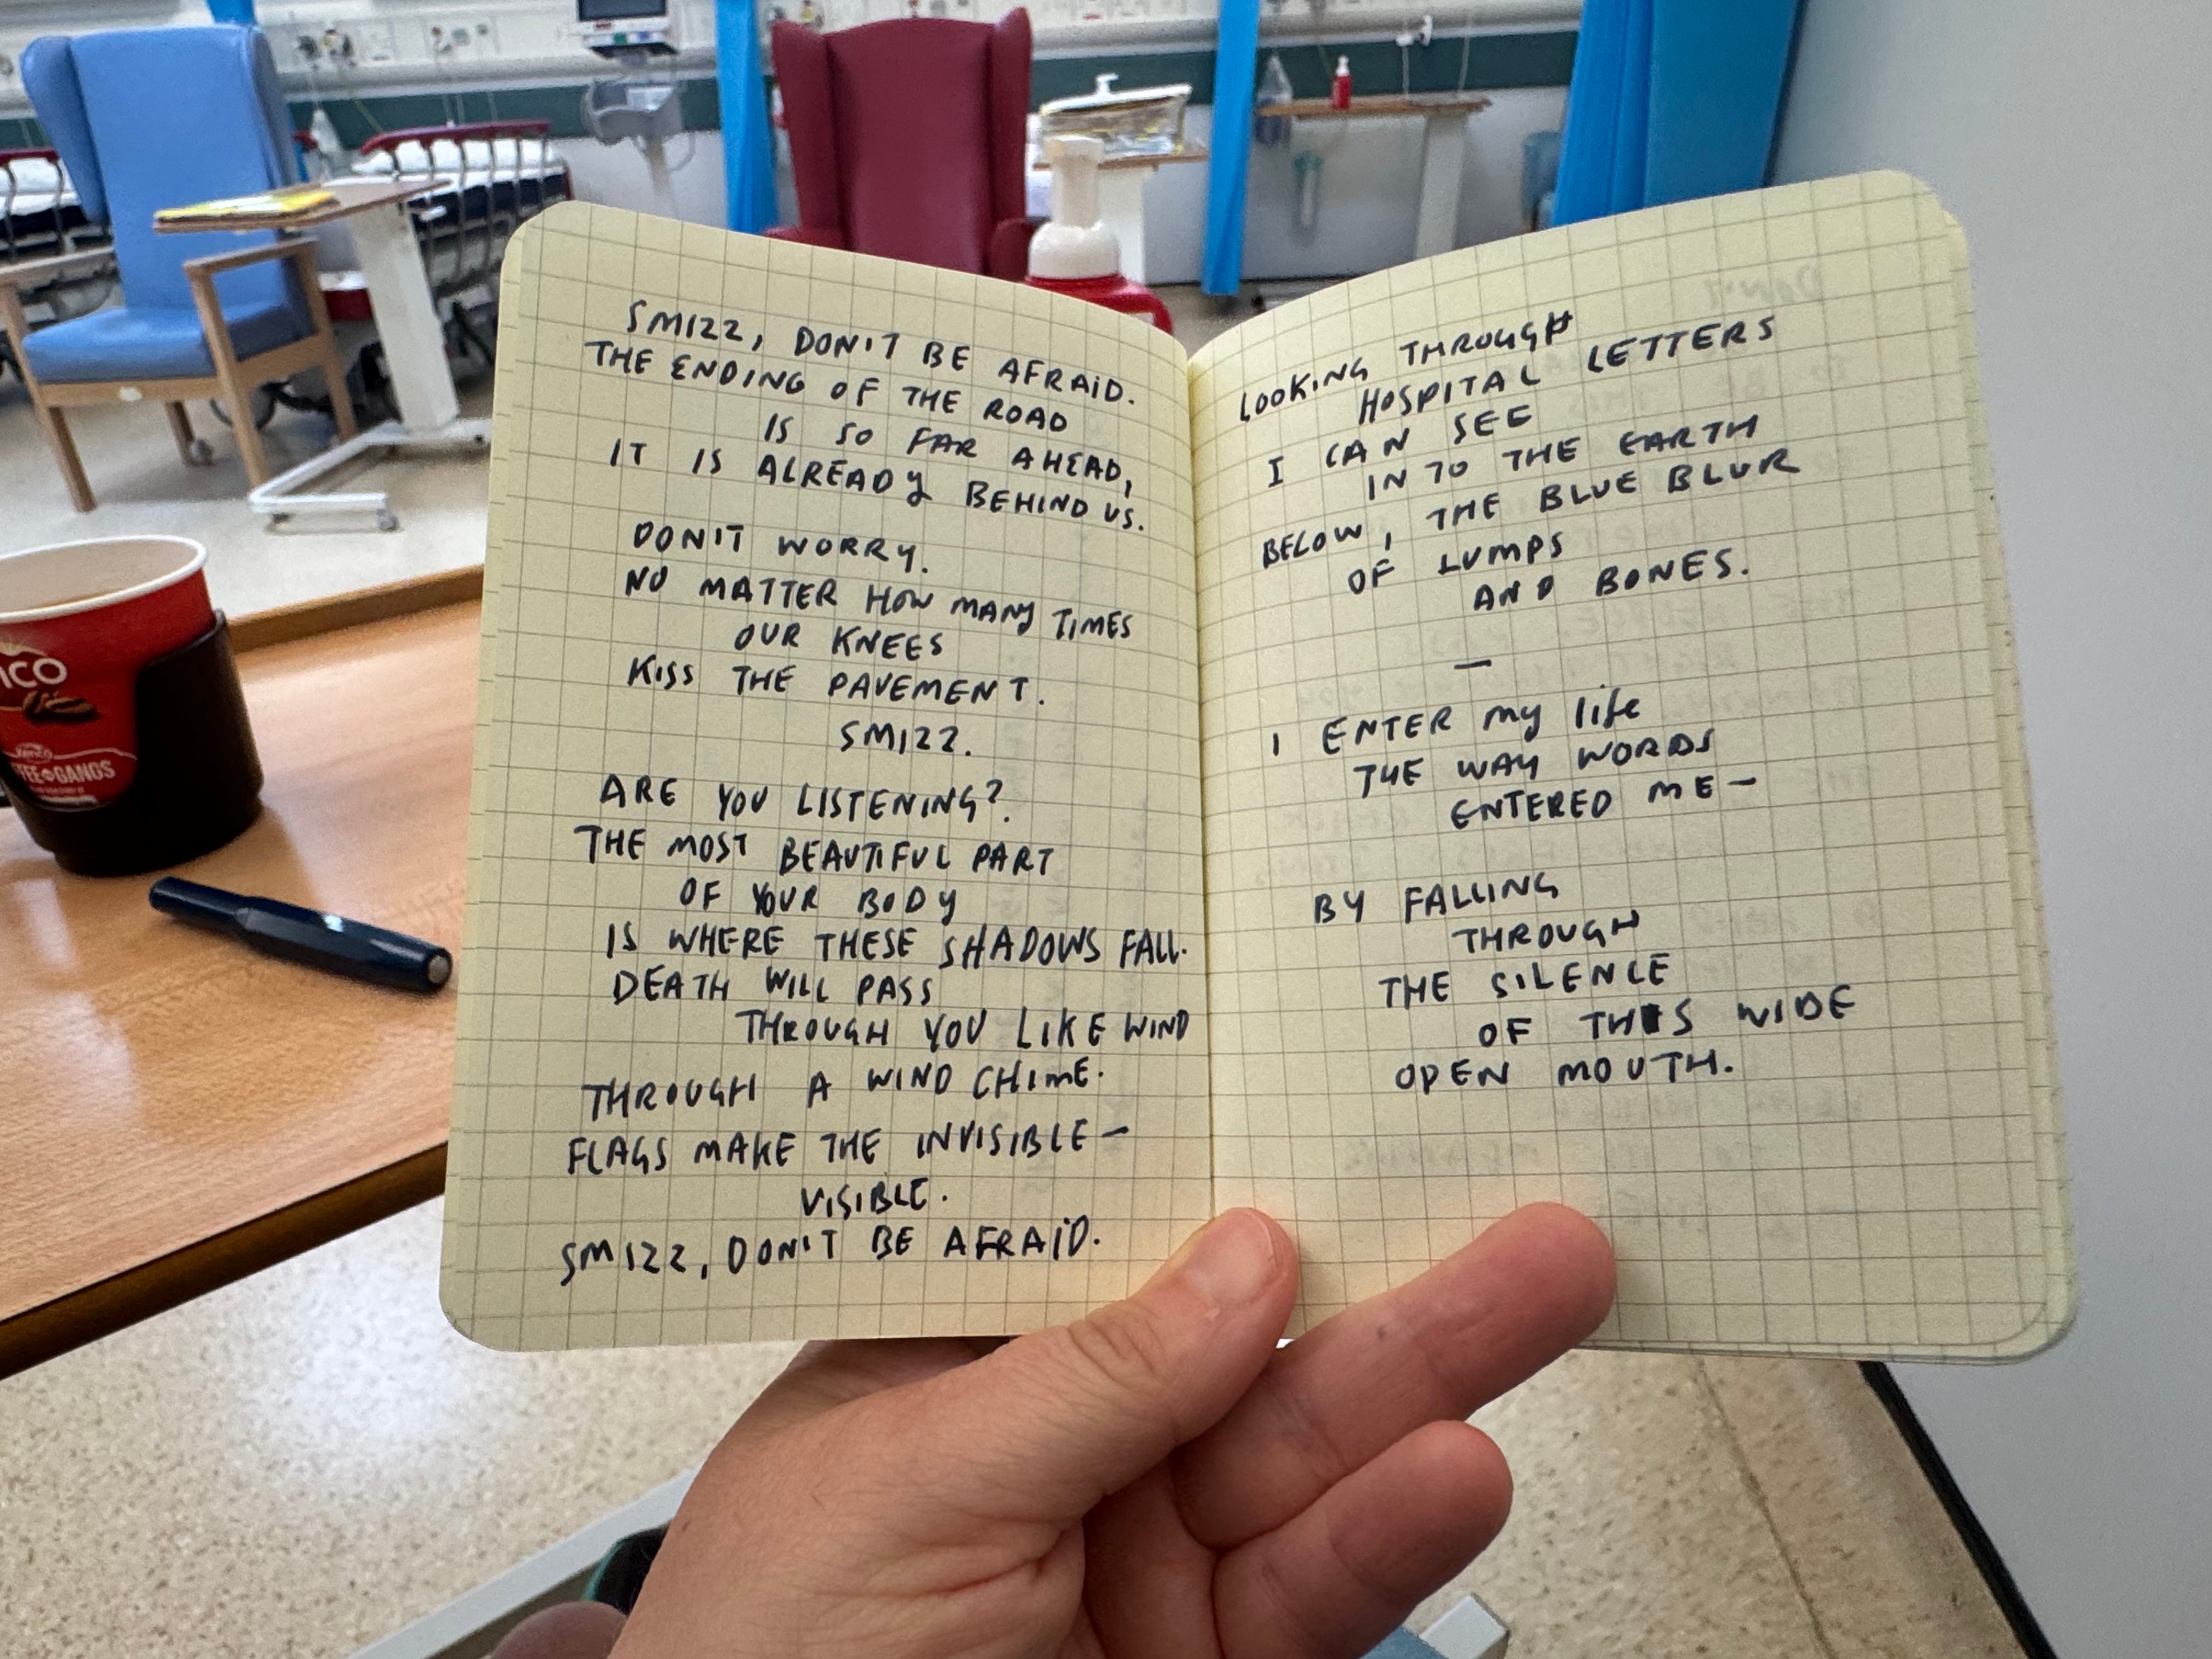 SMIZZ, DON'T BE AFRAID.
THE ENDING OF THE ROAD
IS SO FAR AHEAD,
IT IS ALREADY BEHIND US.
DON'T WORRY.
NO MATTER HOW MANY TIMES
OUR KNEES
KISS THE PAVEMENT.
SMIZZ.
ARE YOU LISTENING?
THE MOST BEAUTIFUL PART
OF YOUR BODY
IS WHERE THESE SHADOWS FALL.
DEATH WILL PASS
THROUGH YOU LIKE WIND
THROUGH A WIND CHIME.
FLAGS MAKE THE INVISIBLE—
VISIBLE.
SMIZZ, DON'T BE AFRAID.
LOOKING THROUGH
HOSPITAL LETTERS
I CAN SEE
IN TO THE EARTH
BELOW, THE BLUE BLUR
OF LUMPS
AND BONES.
—
I ENTER my life
THE WAY WORDS
ENTERED ME—
BY FALLING
THROUGH
THE SILENCE
OF THIS WIDE
OPEN MOUTH.